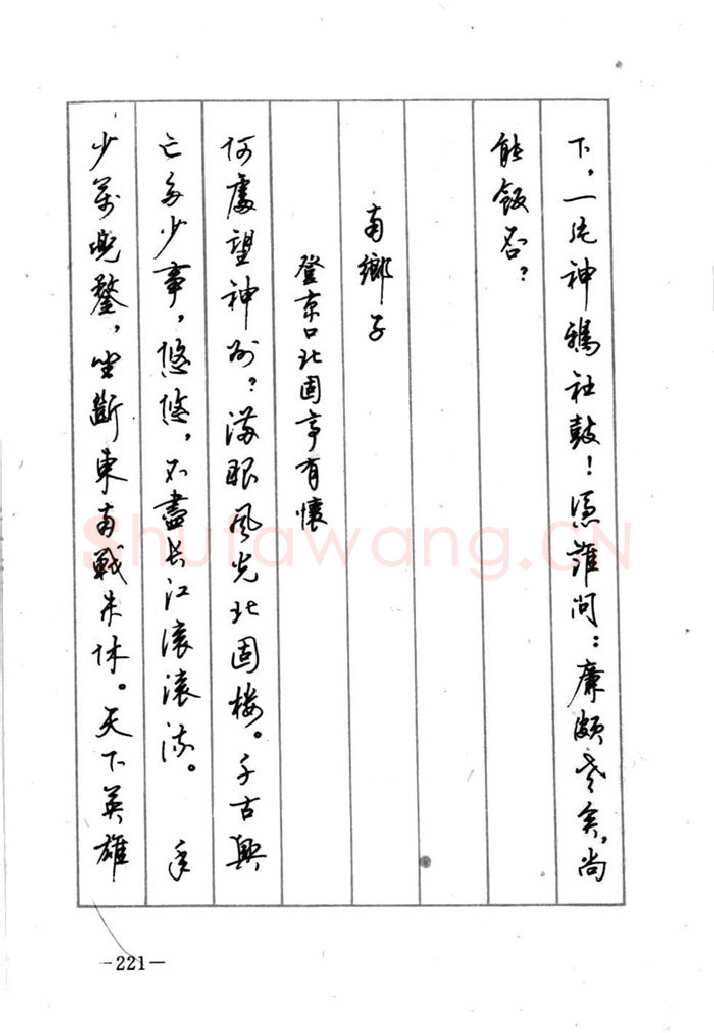 下，一片神鴉社鼓！憑誰问：廉颇老矣，尚
能飯否？
南鄉子
登京口北固亭有懷
何處望神州？满眼風光北固楼。千古興
亡多少事，悠悠，不盡长江滚滚流。 年
少萬兜鍪，坐斷東南戰未休。天下英雄
Shufawang.CN
—221—